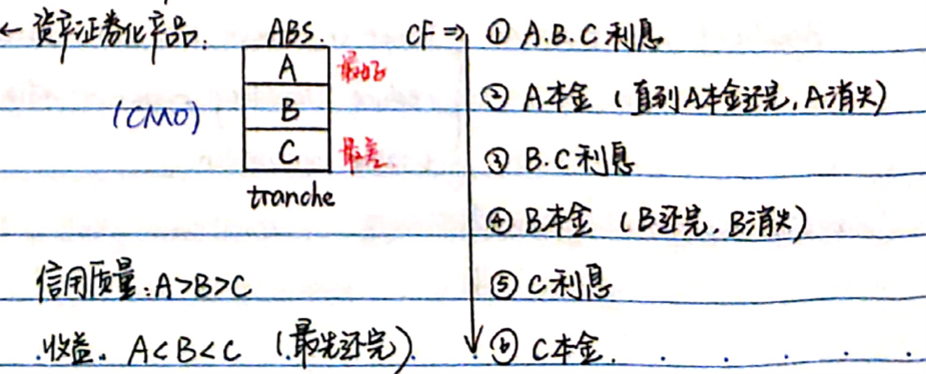 ← 资产证券化产品: ABS. CF ⇒ ① A.B.C 利息
A 最好
(CMO) B ② A本金 (直到A本金还完, A消失)
C 最差 ③ B.C利息
tranche
④ B本金 (B还完, B消失)
信用质量: A>B>C ⑤ C利息
收益. A<B<C (最先还完) ⑥ C本金.